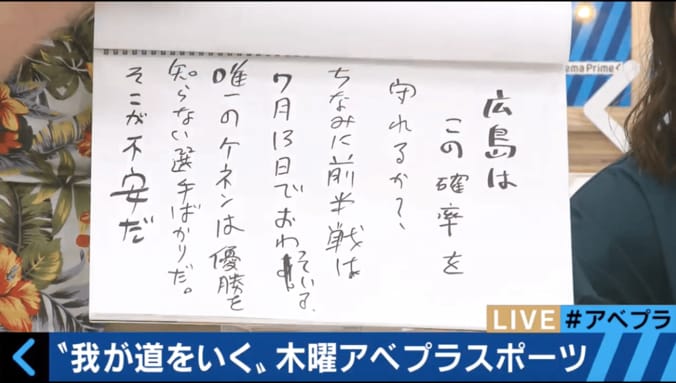 広島は
この確率を
守れるか?、
ちなみに前半戦は
7月13日でおわっている、
唯一のケネンは優勝を
知らない選手ばかりだ。
そこが不安だ
ema Prime
LIVE
#アベプラ
〝我が道をいく〟木曜アベプラスポーツ